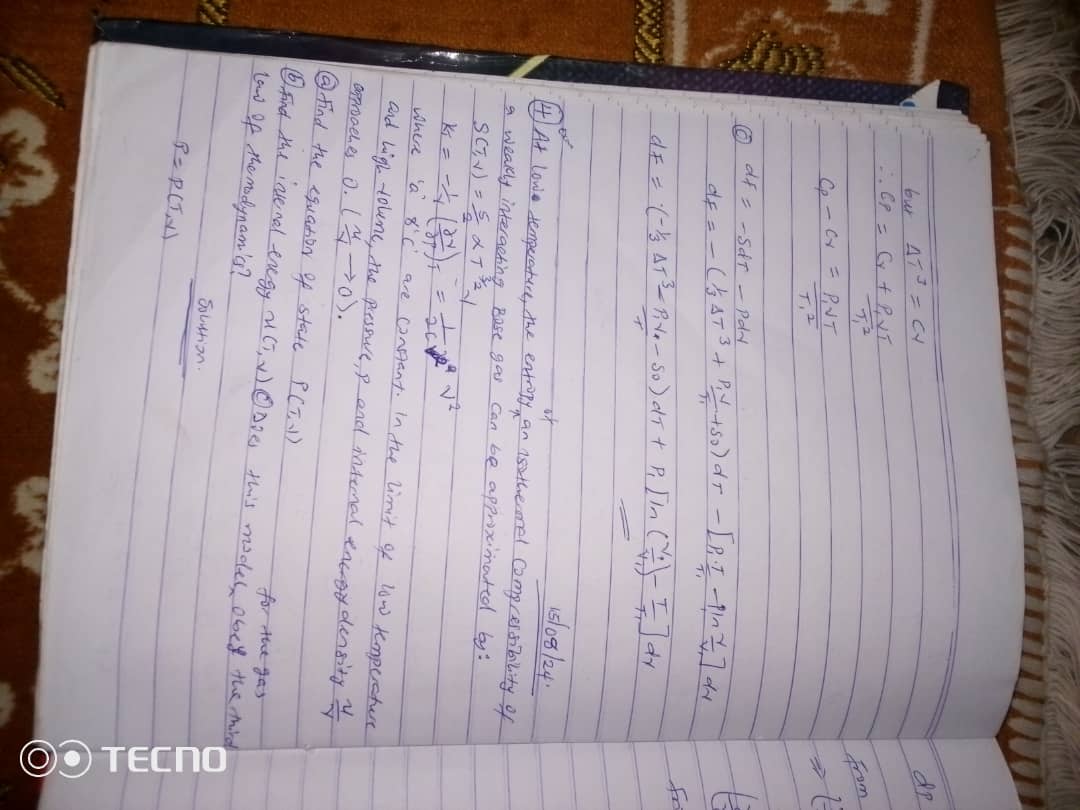 but ΔT³ = Cv
∴ Cp = Cv + P₁VT / T₁²
Cp - Cv = P₁VT / T₁²
Ⓒ dF = -SdT - PdV
dF = -(⅓ΔT³ + P₁V/T₁ + S0)dT - [P₁T/T₁ - P₁ln V/V₁]dV
dF = (-⅓ΔT³ - P₁V/T₁ - S0)dT + P₁[ln(V/V₁) - T/T₁]dV
15/08/24.
④ At low temperature, the entropy of an isothermal compressibility of
a weakly interacting Bose gas can be approximated by:
S(T,V) = 5/2 αT^3/2 V
KT = -1/V (∂V/∂P)T = 1/2C V²
where 'a' & 'C' are constant. In the limit of low temperature
and high volume, the pressure, P and internal energy density u/V
approaches 0. (u/V → 0).
ⓐ Find the equation of state P(T,V)
ⓑ Find the internal energy u(T,V) Ⓒ Does this model for the gas obey the third
law of thermodynamics?
Solution.
P = P(T,V)
dP
from